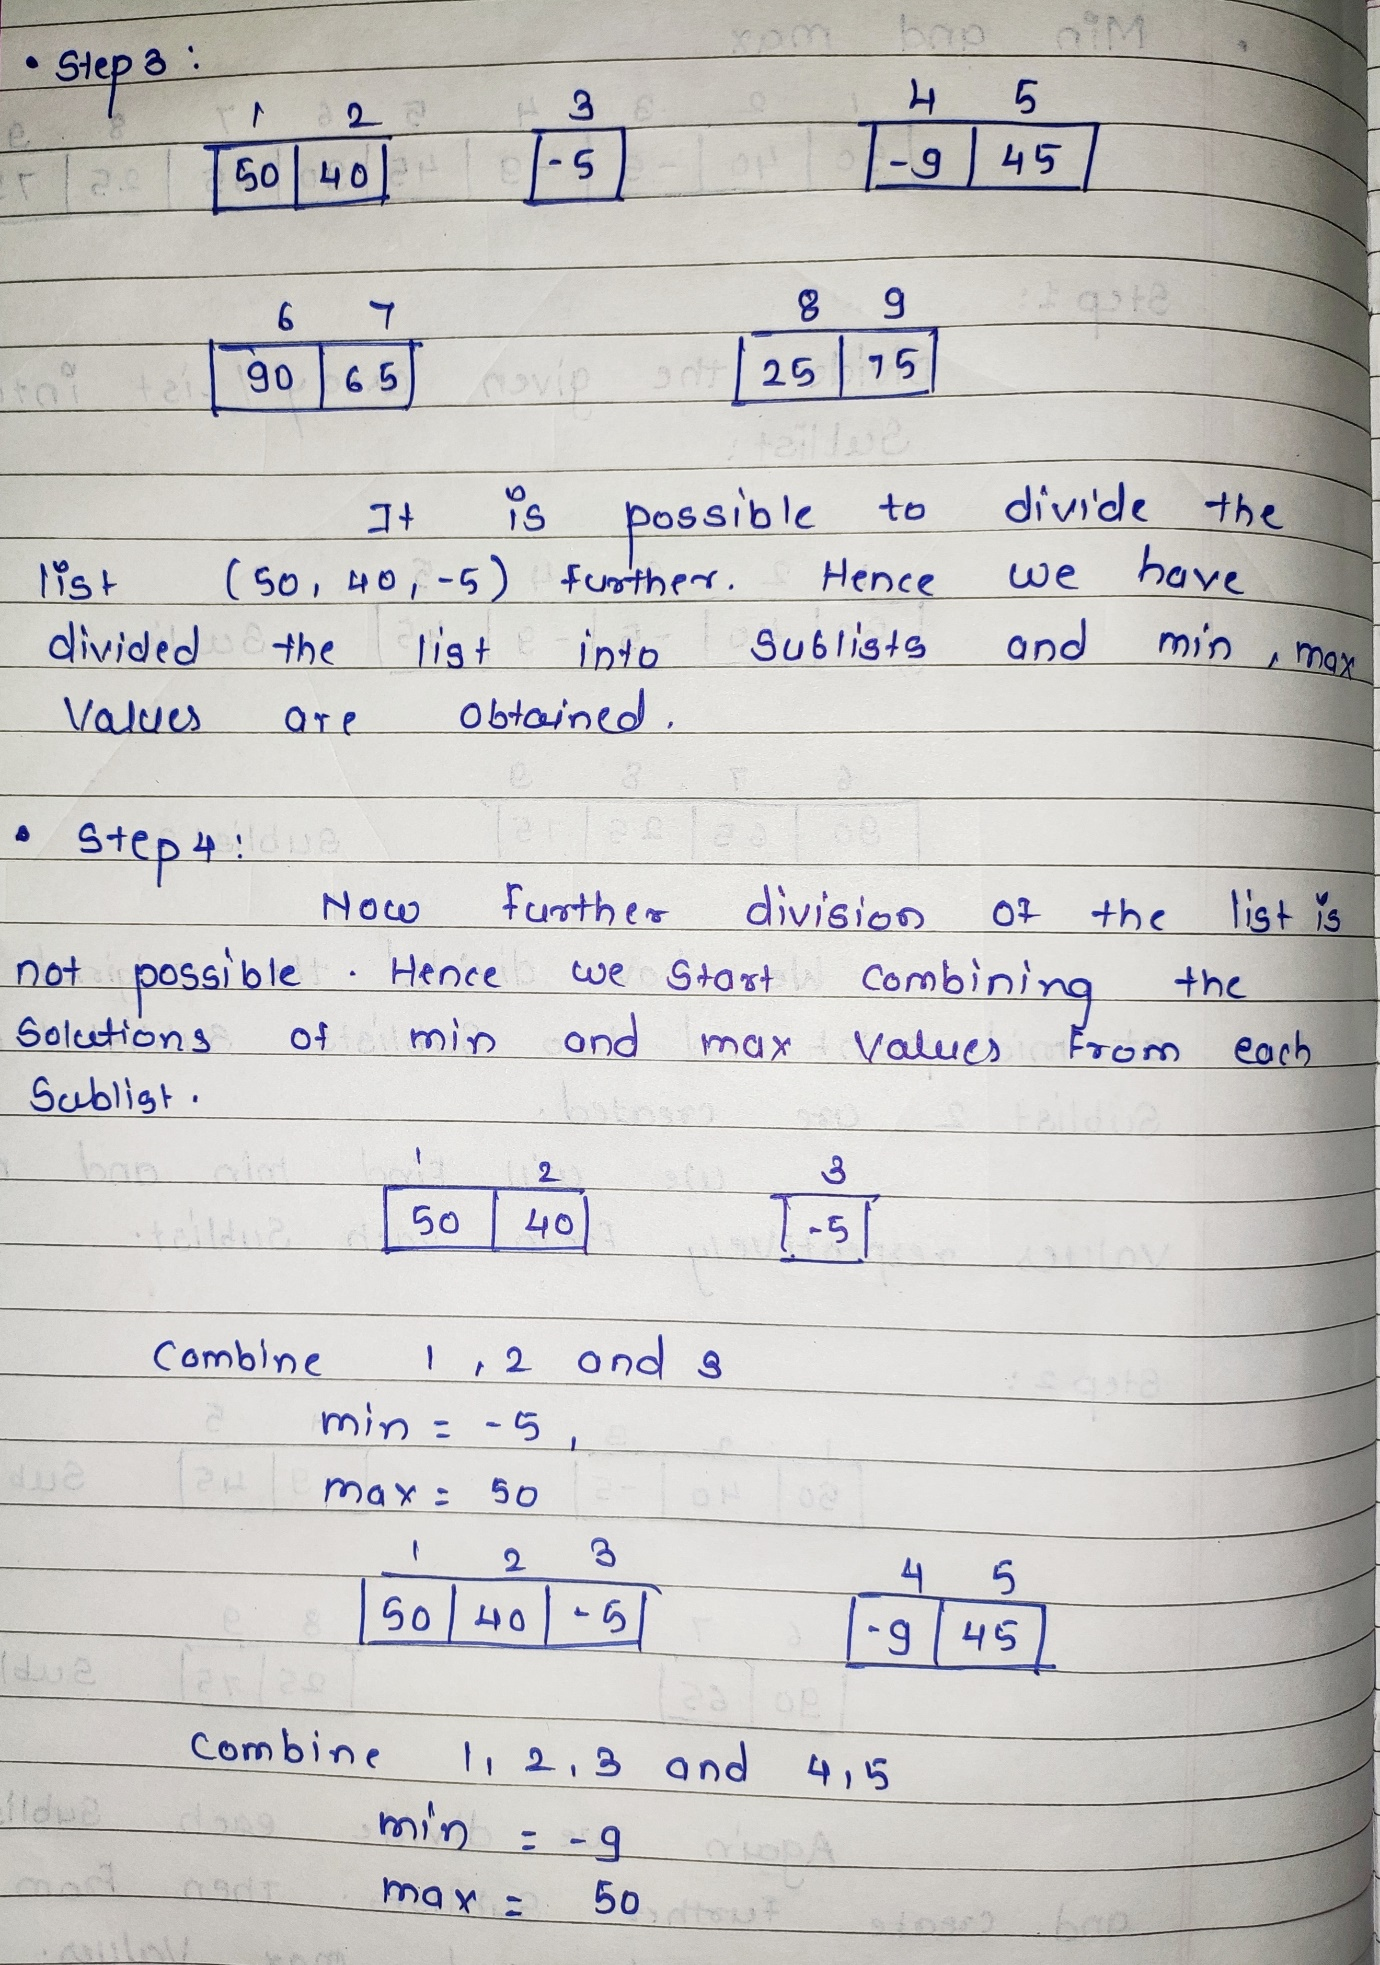 • Step 3 :
1 2 3 4 5
50 40 -5 -9 45
6 7 8 9
90 65 25 75
It is possible to divide the
list (50, 40, -5) further. Hence we have
divided the list into sublists and min, max
values are obtained.
• Step 4 :
Now further division of the list is
not possible. Hence we start combining the
solutions of min and max values from each
sublist.
1 2 3
50 40 -5
Combine 1, 2 and 3
min = -5,
max = 50
1 2 3 4 5
50 40 -5 -9 45
Combine 1, 2, 3 and 4, 5
min = -9
max = 50